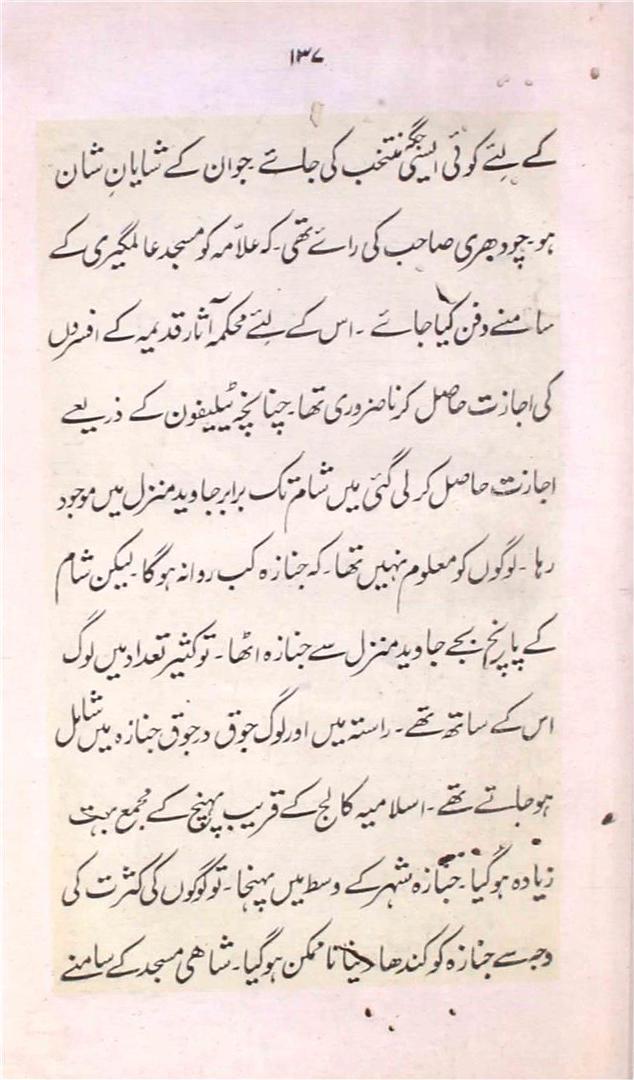 ۱۳۷
کے لئے کوئی ایسی جگہ منتخب کی جائے جو ان کے شایانِ شان
ہو۔ چودھری صاحب کی رائے تھی۔ کہ علامہ کو مسجد عالمگیری کے
سامنے دفن کیا جائے ۔ اس کے لئے محکمہ آثار قدیمہ کے افسروں
کی اجازت حاصل کرنا ضروری تھا۔ چنانچہ ٹیلیفون کے ذریعے
اجازت حاصل کر لی گئی میں شام تک برابر جاوید منزل میں موجود
رہا ۔ لوگوں کو معلوم نہیں تھا۔ کہ جنازہ کب روانہ ہوگا۔ لیکن شام
کے پانچ بجے جاوید منزل سے جنازہ اٹھا۔ تو کثیر تعداد میں لوگ
اس کے ساتھ تھے ۔ راستہ میں اور لوگ جوق در جوق جنازہ میں شامل
ہو جاتے تھے ۔ اسلامیہ کالج کے قریب پہنچ کے مجمع بہت
زیادہ ہو گیا۔ جنازہ شہر کے وسط میں پہنچا۔ تو لوگوں کی کثرت کی
وجہ سے جنازہ کو کندھا دینا نا ممکن ہو گیا۔ شاھی مسجد کے سامنے